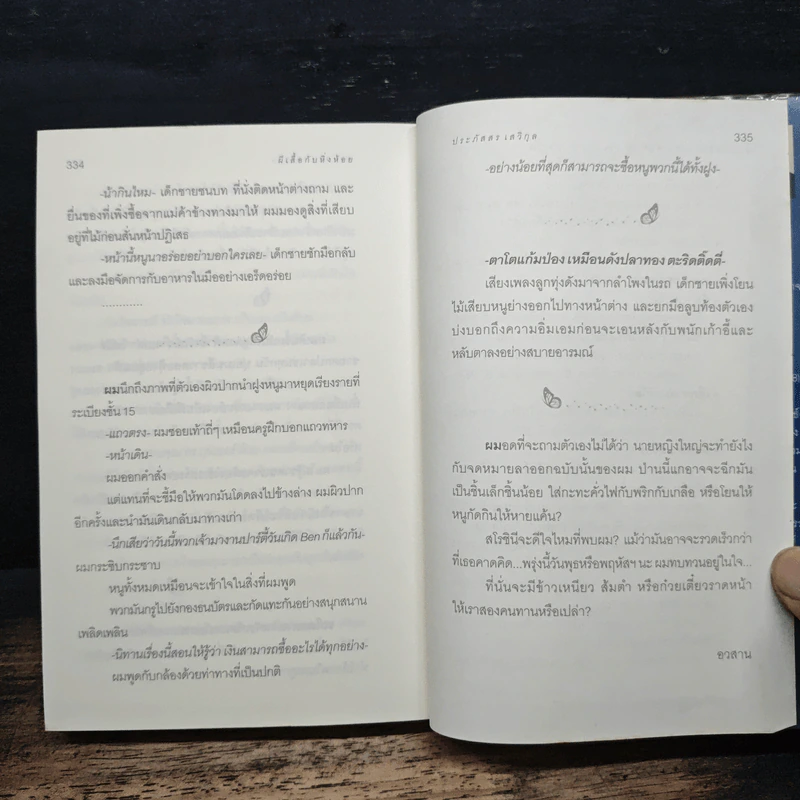 334
ผีเสื้อกับหิ่งห้อย
-น้ากินไหม- เด็กชายชนบท ที่นั่งติดหน้าต่างถาม และ
ยื่นของที่เพิ่งซื้อจากแม่ค้าข้างทางมาให้ ผมมองดูสิ่งที่เสียบ
อยู่ที่ไม้ก่อนสั่นหน้าปฏิเสธ
-หน้านี้หนูนาอร่อยอย่าบอกใครเลย- เด็กชายชักมือกลับ
และลงมือจัดการกับอาหารในมืออย่างเอร็ดอร่อย
............
ผมนึกถึงภาพที่ตัวเองผิวปากนำฝูงหนูมาหยุดเรียงรายที่
ระเบียงชั้น 15
-แถวตรง- ผมซอยเท้าถี่ๆ เหมือนครูฝึกบอกแถวทหาร
-หน้าเดิน-
ผมออกคำสั่ง
แต่แทนที่จะชี้มือให้พวกมันโดดลงไปข้างล่าง ผมผิวปาก
อีกครั้งและนำมันเดินกลับมาทางเก่า
-นึกเสียว่าวันนี้พวกเจ้ามางานปาร์ตี้วันเกิด Ben ก็แล้วกัน-
ผมกระซิบกระซาบ
หนูทั้งหมดเหมือนจะเข้าใจในสิ่งที่ผมพูด
พวกมันกรูไปยังกองธนบัตรและกัดแทะกันอย่างสนุกสนาน
เพลิดเพลิน
-นิทานเรื่องนี้สอนให้รู้ว่า เงินสามารถซื้ออะไรได้ทุกอย่าง-
ผมพูดกับกล้องด้วยท่าทางที่เป็นปกติ
ประภัสสร เสวิกุล
335
-อย่างน้อยที่สุดก็สามารถจะซื้อหนูพวกนี้ได้ทั้งฝูง-
-ตาโตแก้มป่อง เหมือนดังปลาทอง ตะริดติ๊ดตี่-
เสียงเพลงลูกทุ่งดังมาจากลำโพงในรถ เด็กชายเพิ่งโยน
ไม้เสียบหนูย่างออกไปทางหน้าต่าง และยกมือลูบท้องตัวเอง
บ่งบอกถึงความอิ่มเอมก่อนจะเอนหลังกับพนักเก้าอี้และ
หลับตาลงอย่างสบายอารมณ์
ผมอดที่จะถามตัวเองไม่ได้ว่า นายหญิงใหญ่จะทำยังไง
กับจดหมายลาออกฉบับนั้นของผม ป่านนี้แกอาจจะฉีกมัน
เป็นชิ้นเล็กชิ้นน้อย ใส่กะทะคั่วไฟกับพริกกับเกลือ หรือโยนให้
หนูกัดกินให้หายแค้น?
สโรชินีจะดีใจไหมที่พบผม? แม้ว่ามันอาจจะรวดเร็วกว่า
ที่เธอคาดคิด...พรุ่งนี้วันพุธหรือพฤหัสฯ นะ ผมทบทวนอยู่ในใจ...
ที่นั่นจะมีข้าวเหนียว ส้มตำ หรือก๋วยเตี๋ยวราดหน้า
ให้เราสองคนทานหรือเปล่า?
อวสาน